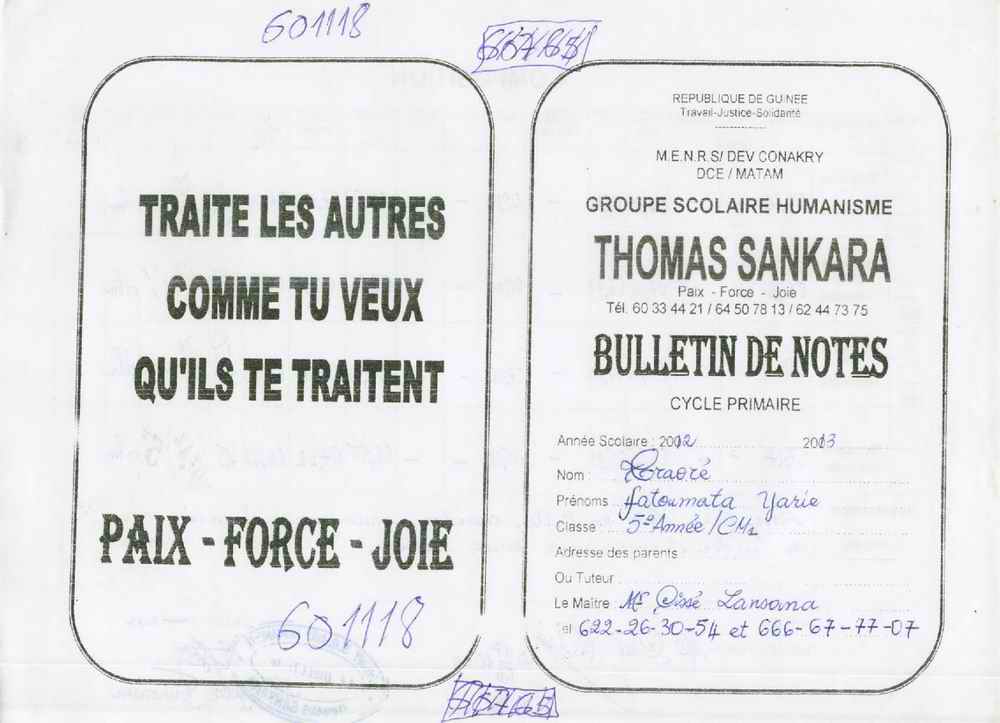 601118
TRAITE LES AUTRES
COMME TU VEUX
QU'ILS TE TRAITENT
PAIX - FORCE - JOIE
601118
REPUBLIQUE DE GUINEE
Travail-Justice-Solidarité
M.E.N.R.S/ DEV CONAKRY
DCE / MATAM
GROUPE SCOLAIRE HUMANISME
THOMAS SANKARA
Paix - Force - Joie
Tél. 60 33 44 21 / 64 50 78 13 / 62 44 73 75
BULLETIN DE NOTES
CYCLE PRIMAIRE
Année Scolaire : 2012 2013
Nom : Traoré
Prénoms : fatoumata Yarie
Classe : 5e Année / CM1
Adresse des parents
Ou Tuteur
Le Maître : Mr Cissé Lansana
Tel 622-26-30-54 et 666-67-77-07